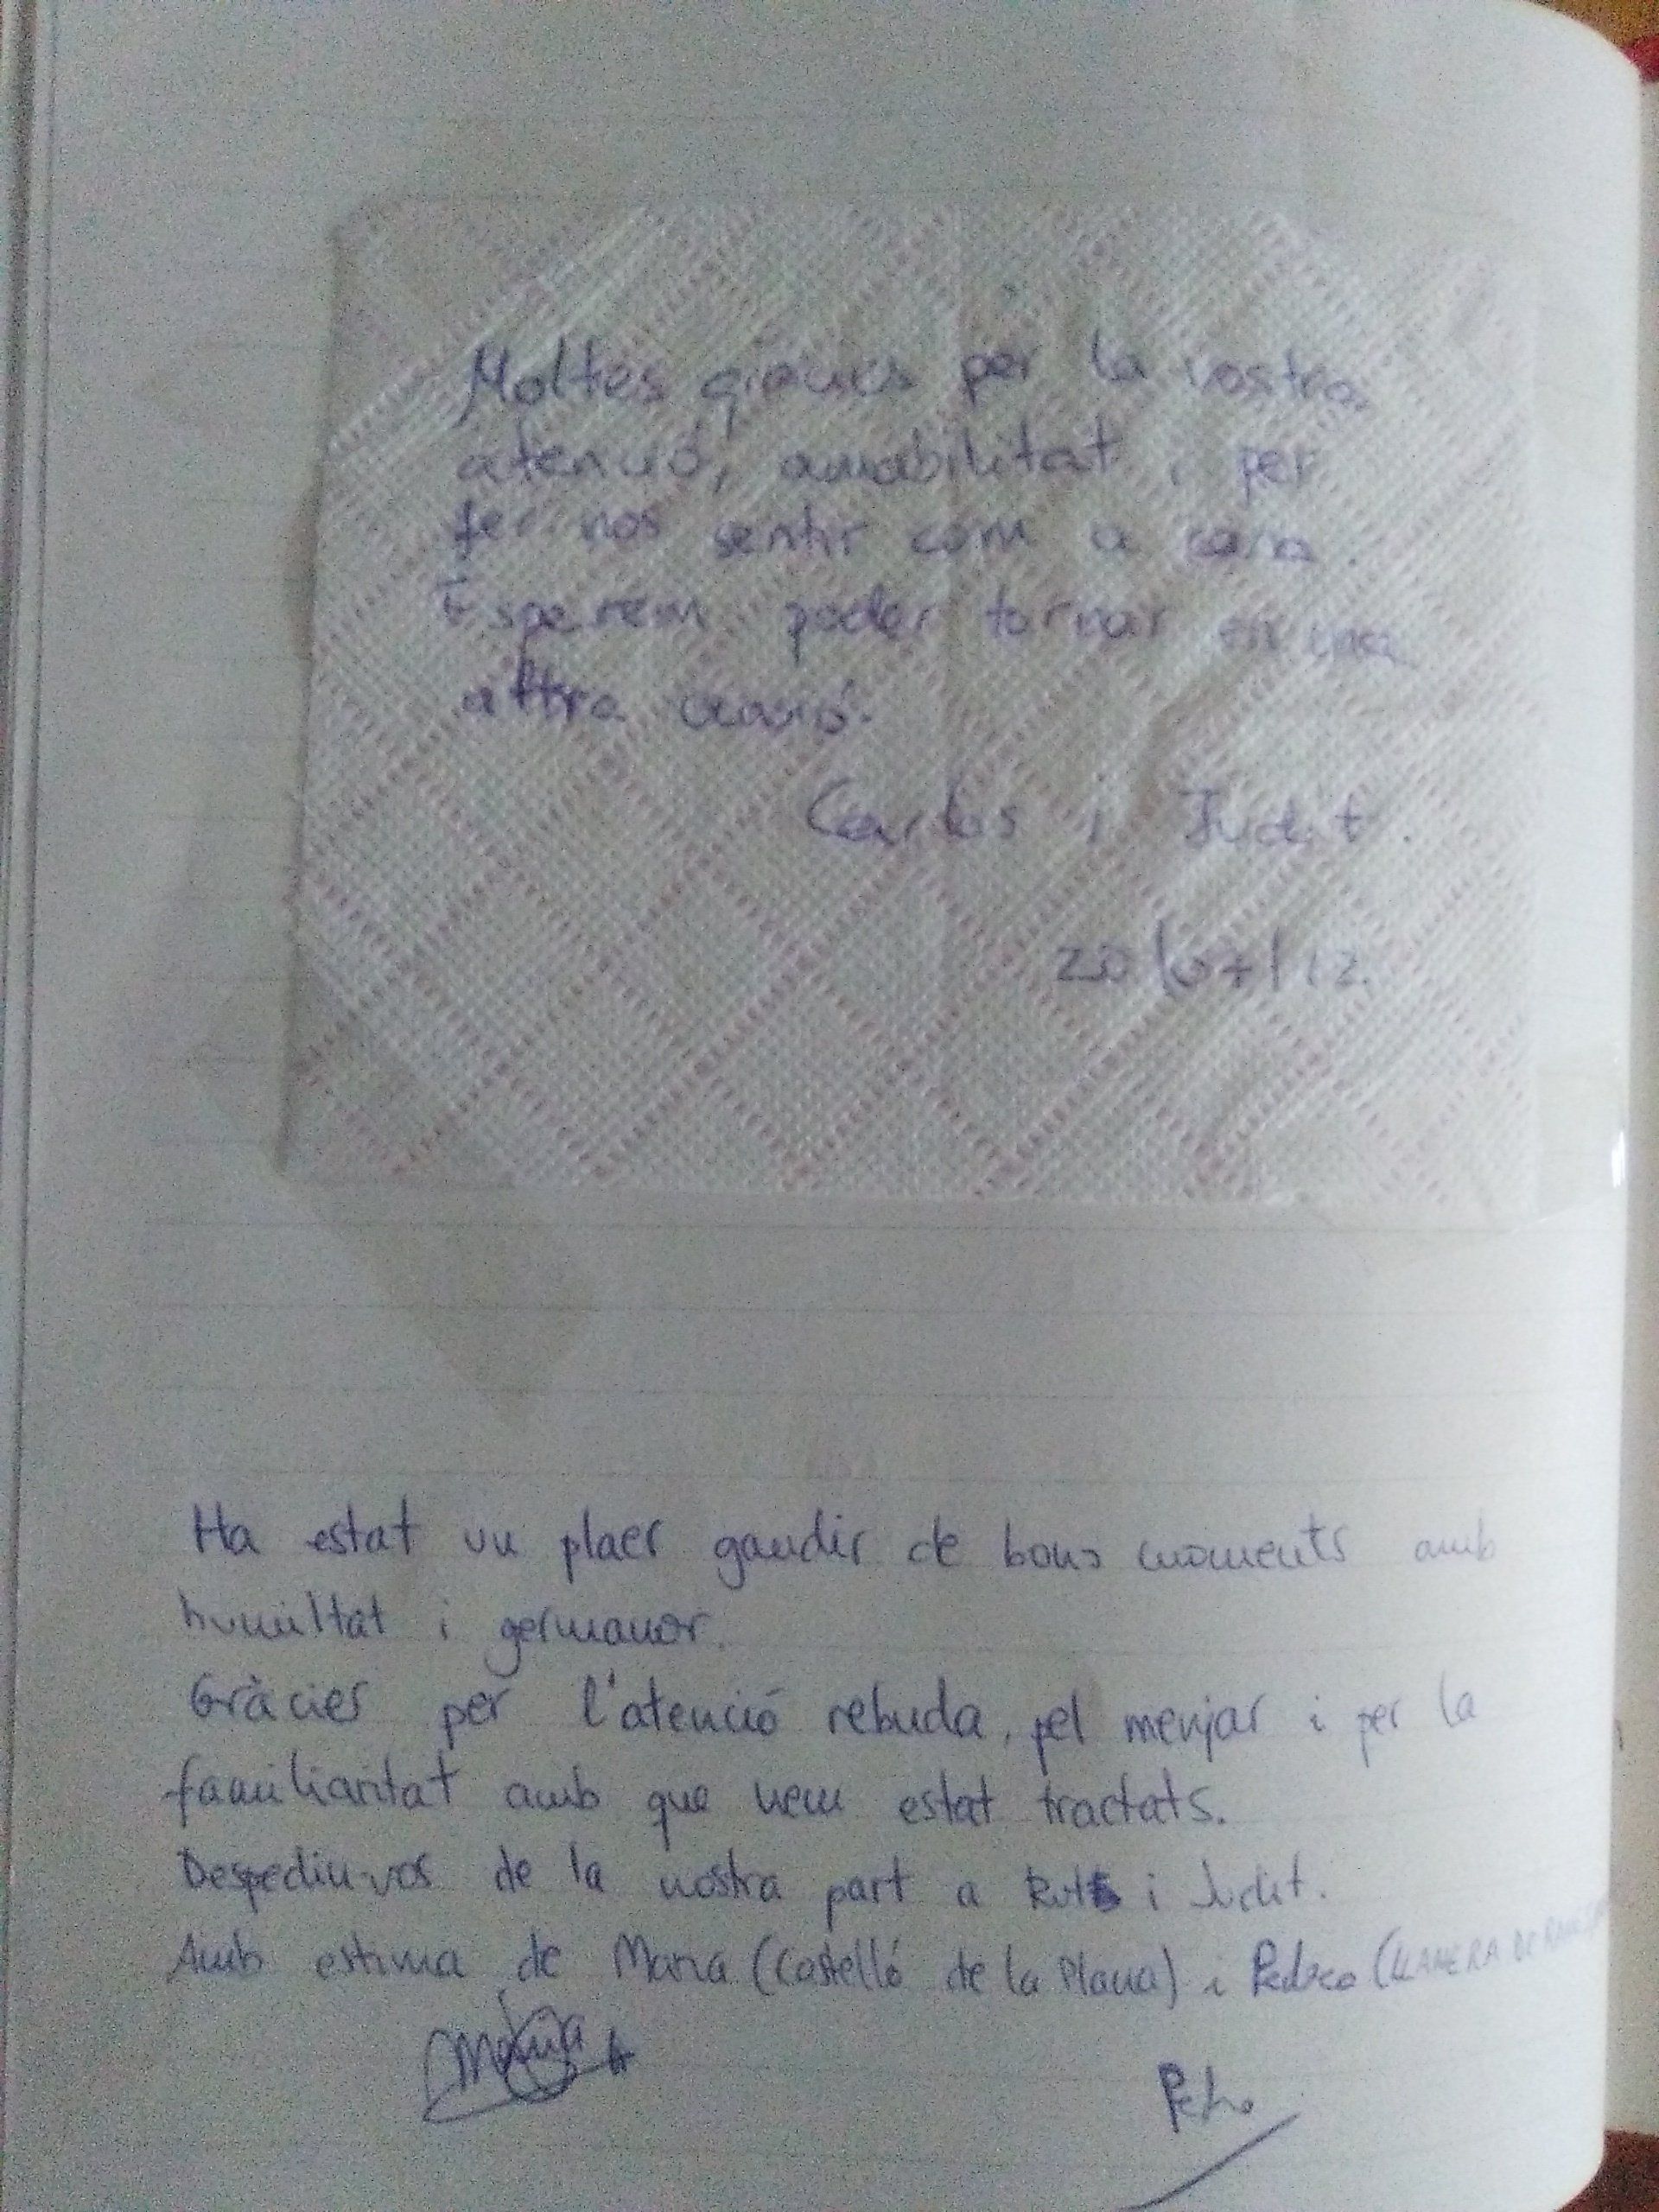 Moltes gràcies per la vostra
atenció, amabilitat i per
fer-nos sentir com a casa.
Esperem poder tornar en una
altra ocasió.
Carlos i Judit.
20/07/12.
Ha estat un plaer gaudir de bons moments amb
humiltat i germanor.
Gràcies per l'atenció rebuda, pel menjar i per la
familiaritat amb que hem estat tractats.
Despediu-vos de la nostra part a Rut i Judit.
Amb estima de Maria (Castelló de la Plana) i Pedro (LLANERA DE
Maria
Pedro